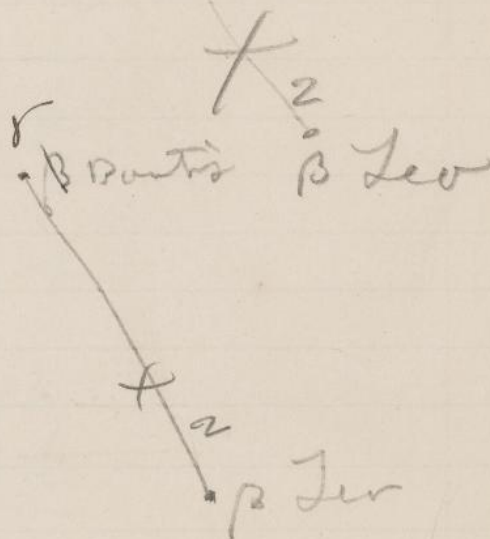 2
γ
β Bootis β Leo
2
β Leo